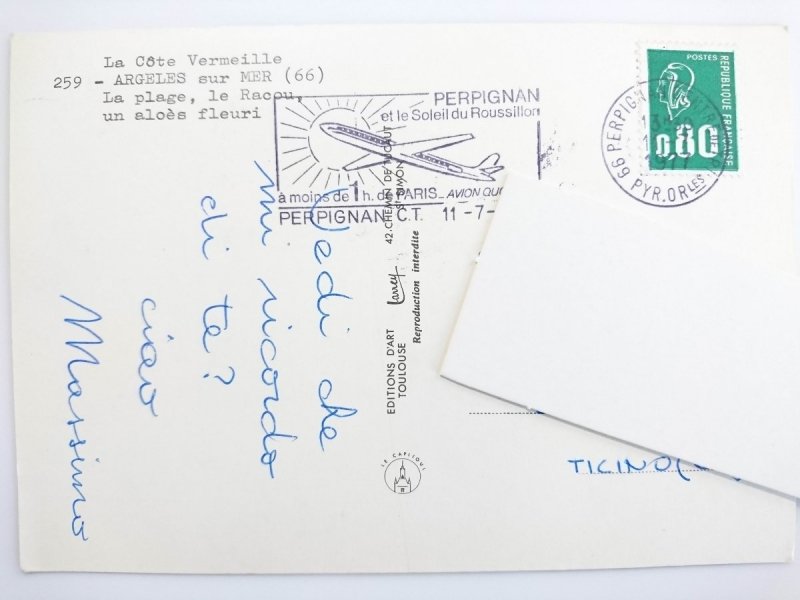 La Côte Vermeille
259 - ARGELES sur MER (66)
La plage, le Racou,
un aloès fleuri
PERPIGNAN
et le Soleil du Roussillon
à moins de 1 h. de PARIS_ AVION
PERPIGNAN C.T. 11-7-
POSTES
REPUBLIQUE FRANÇAISE
0,80
66 PERPIGN
PYR.ORLES
Vedi che
mi ricordo
di te?
ciao
Massimo
EDITIONS D'ART Larrey 42, CHEMIN DE
TOULOUSE
Reproduction interdite
LE CAPITOUL
TICINO